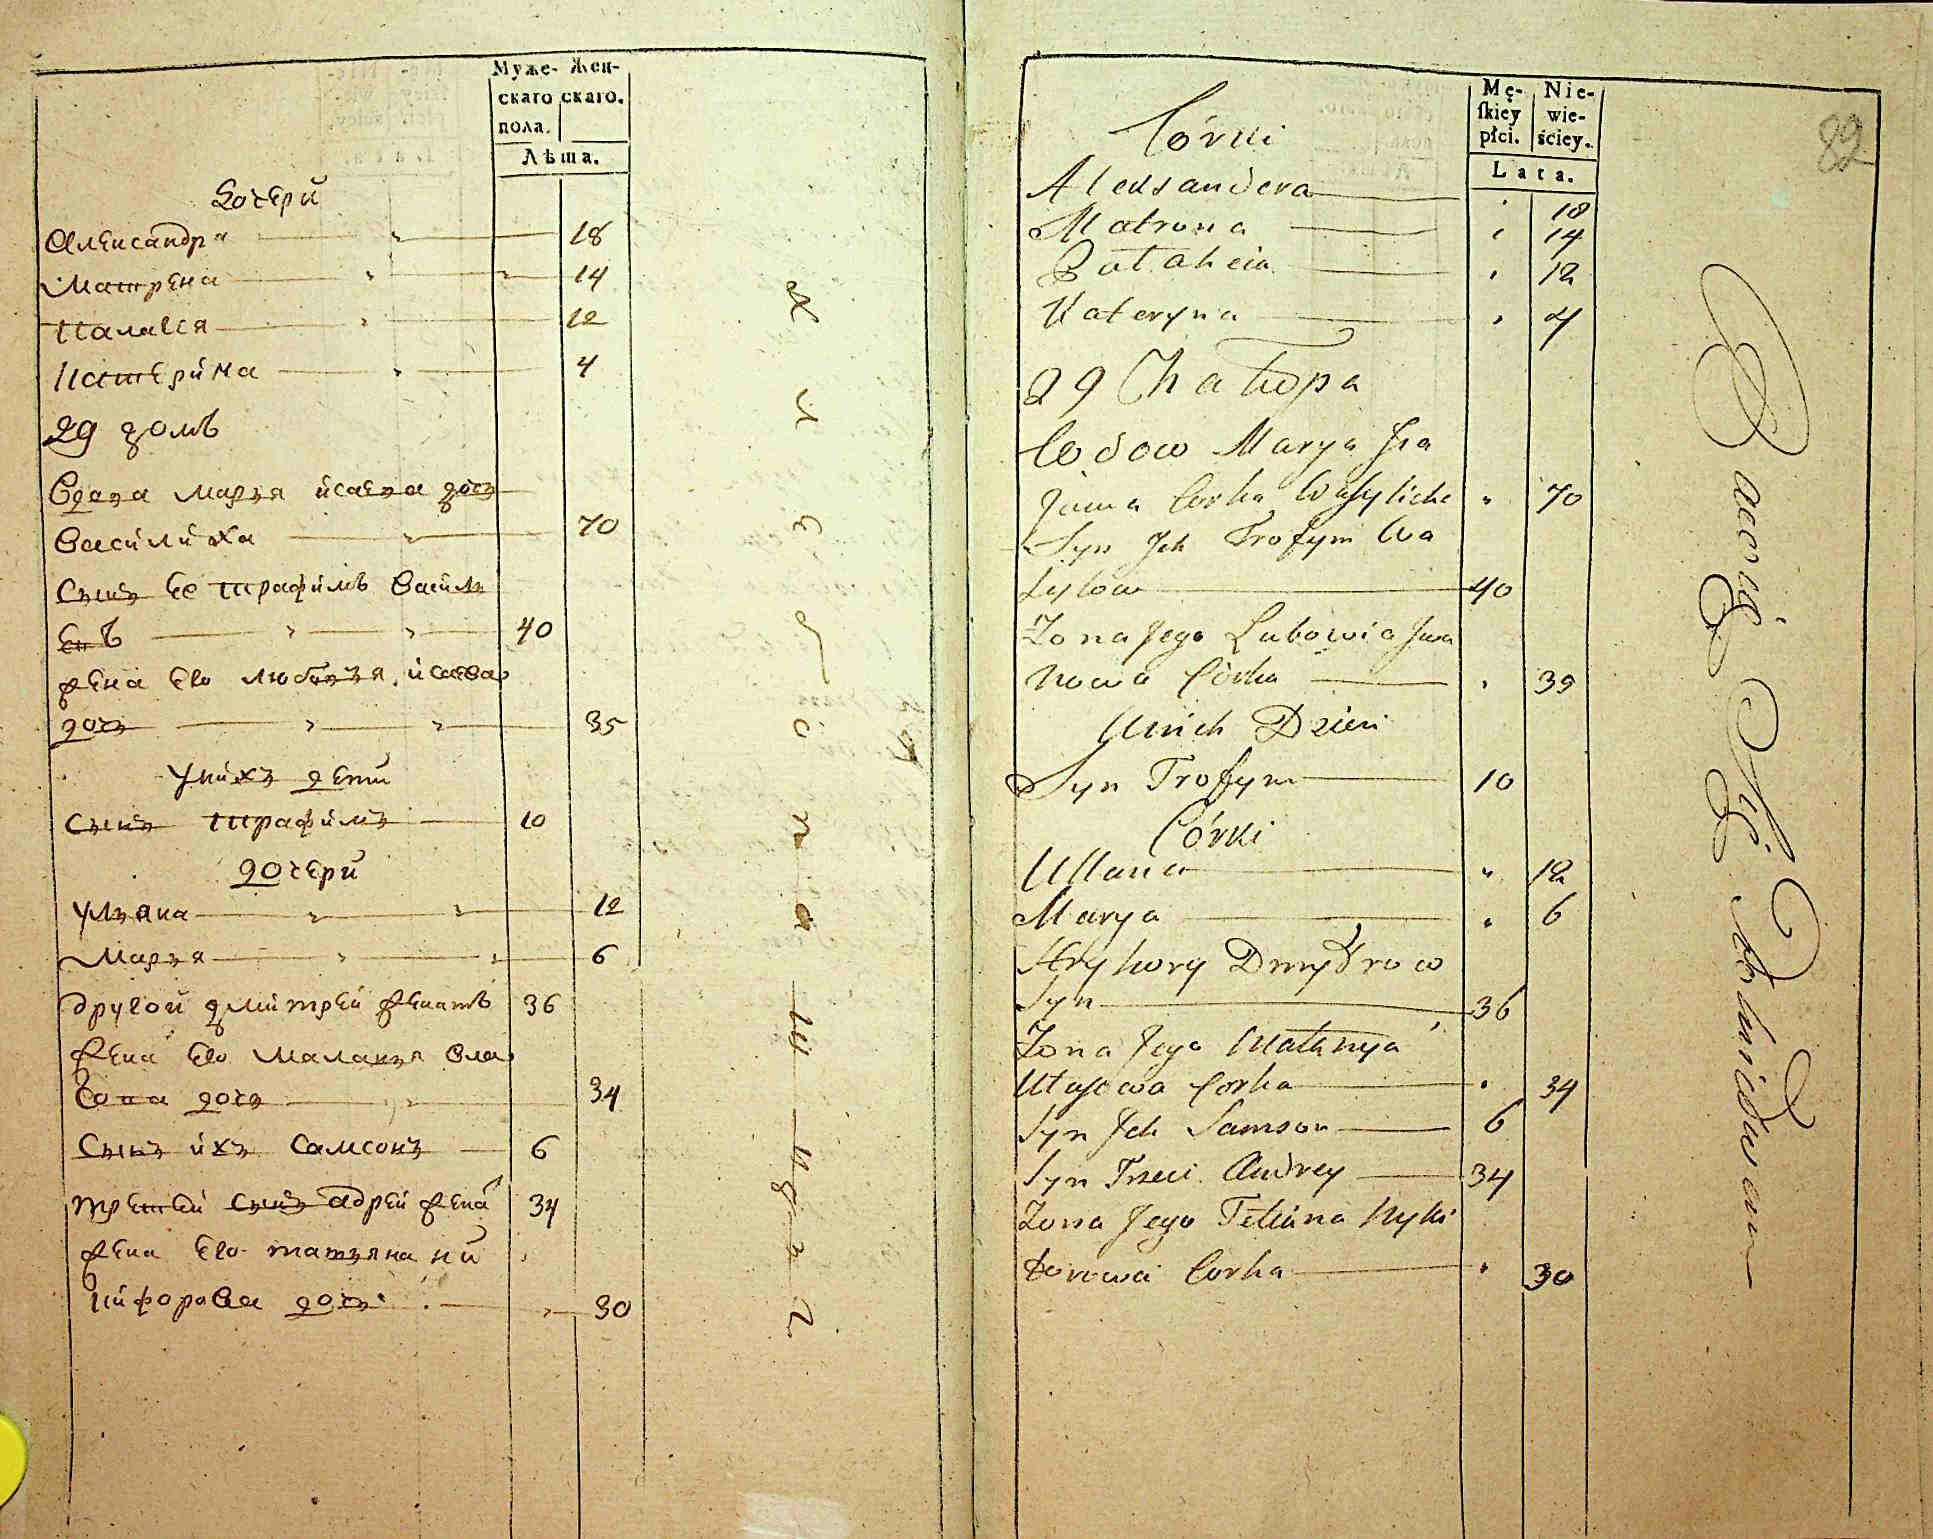 Муже- Жен-
скаго скаго.
пола.
Лѣта.
Дочери
Александра " 18
Матрена " " 14
Палагея " 12
Катерина " 4
29 домъ
Вдова Марья Исаева дочь
Василиха " 70
Сынъ ее Трафимъ Василь
евъ " " 40
жена его Любовья Исаева
дочь " " 35
У нихъ дети
Сынъ Трафимъ 10
дочери
Ульяна " " 12
Марья " " 6
другой Дмитрей женатъ 36
жена его Маланья Вла
сова дочь " 34
Сынъ ихъ Самсонъ 6
третей сынъ Адрей жена 34
жена его татьяна ни
кифорова дочь " 30
Mę- Nie-
ſkiey wie-
płci. ściey.
Lata.
82
Córki
Alexandera 18
Matrona 14
Kateryna " 4
29 Chałupa
Wdowa Marya Isa
jowa Corka Wasylicha " 70
Syn Jeh Trofym Wa
sylow 40
Żona Jego Lubowia Iwa
nowa Córka " 35
U nich Dzieci
Syn Trofym 10
Córki
Ullana " 12
Marya " 6
Hryhory Dmytrow
Syn 36
Żona Jego Małanya
Ułasowa Corka " 34
Syn Jch Samson 6
Syn Trzeci Andrey 34
Żona Jego Tetiana Nyki
forowa Corka " 30